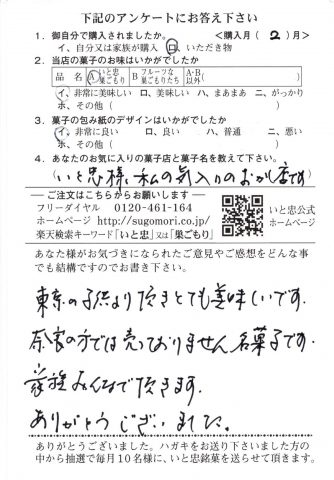 下記のアンケートにお答え下さい
1. 御自分で購入されましたか。 <購入月( 2 )月>
イ、自分又は家族が購入 ロ、いただき物
2. 当店の菓子のお味はいかがでしたか
品 名 A いと忠 巣ごもり B フルーツな 巣ごもりたち A・B以外( )
イ、非常に美味しい ロ、美味しい ハ、まあまあ ニ、がっかり
ホ、その他( )
3. 菓子の包み紙のデザインはいかがでしたか
イ、非常に良い ロ、良い ハ、普通 ニ、悪い
ホ、その他( )
4. あなたのお気に入りの菓子店と菓子名を教えて下さい。
(いと忠様、私の気入りのおかし店です)
ご注文はこちらからお願いします
フリーダイヤル 0120-461-164
ホームページ http://sugomori.co.jp/
楽天検索キーワード「いと忠」又は「巣ごもり」
いと忠公式
ホームページ
あなた様がお気づきになられたご意見やご感想をどんな事
でも結構ですのでお書き下さい。
東京の子供より頂きとても美味しいです.
奈良の方では売っておりません 名菓子です.
家族みんなで頂きます.
ありがとうございました。
ありがとうございました。ハガキをお送り下さいました方の
中から抽選で毎月10名様に、いと忠銘菓を送らせて頂きます。